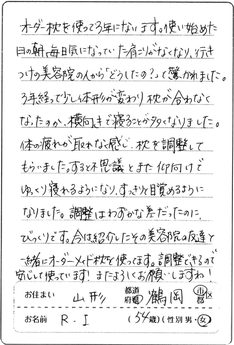 オーダー枕を使って3年になります。使い始めた
日の朝、毎日気になっていた肩こりがなくなり、行き
つけの美容院の人から「どうしたの?」って驚かれました。
3年経って少し体形が変わり枕が合わなく
なったのか、横向きで寝ることが多くなりました。
体の疲れが取れなく感じ、枕を調整して
もらいました。すると不思議とまた仰向けで
ゆっくり寝れるようになり、すっきりと目覚めるように
なりました。調整はわずかな差だったのに、
びっくりです。今は紹介したその美容院の友達と
一緒にオーダーメイド枕を使ってます。調整できるので
安心して使っています!またよろしくお願いしますね!
お住まい 山形 都道府県 鶴岡 市区
お名前 R.I (54歳)(性別 男・女)